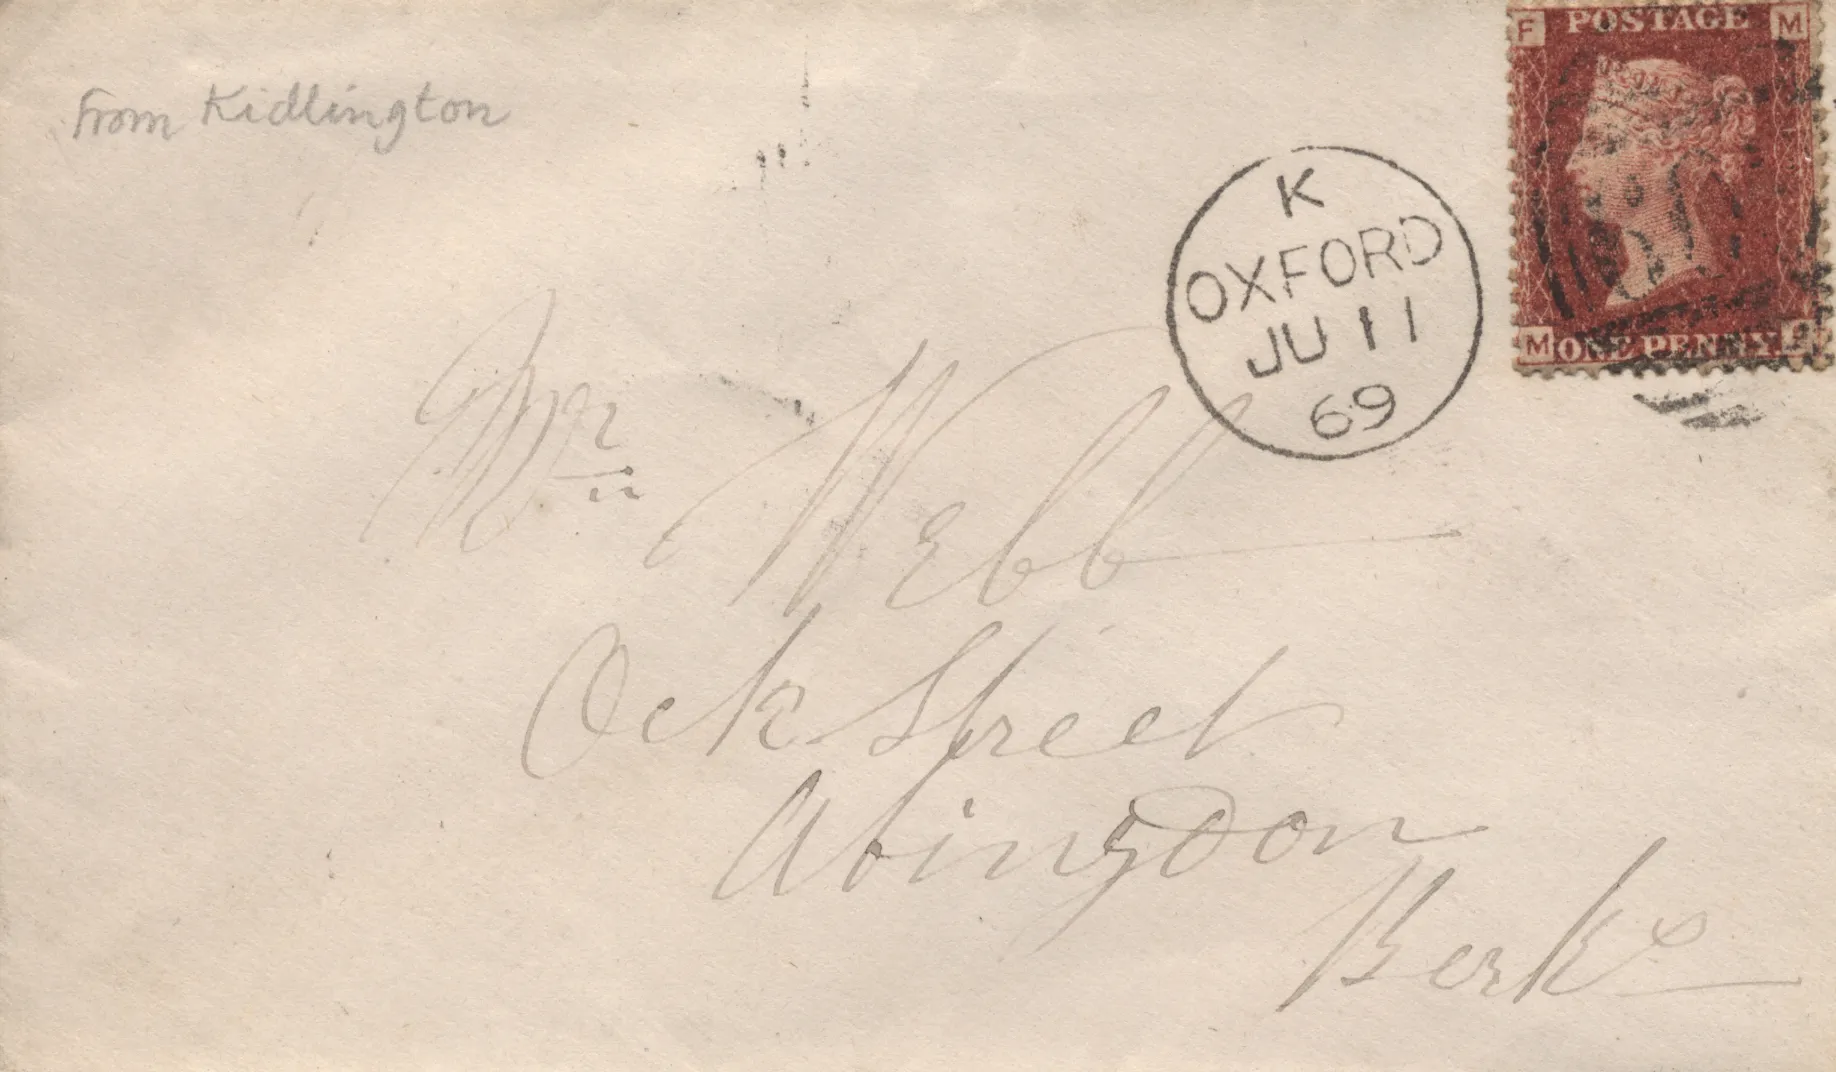 From Kidlington
F POSTAGE M
M ONE PENNY F
K
OXFORD
JU 11
69
Mr Webb
Ock Street
Abingdon
Berks